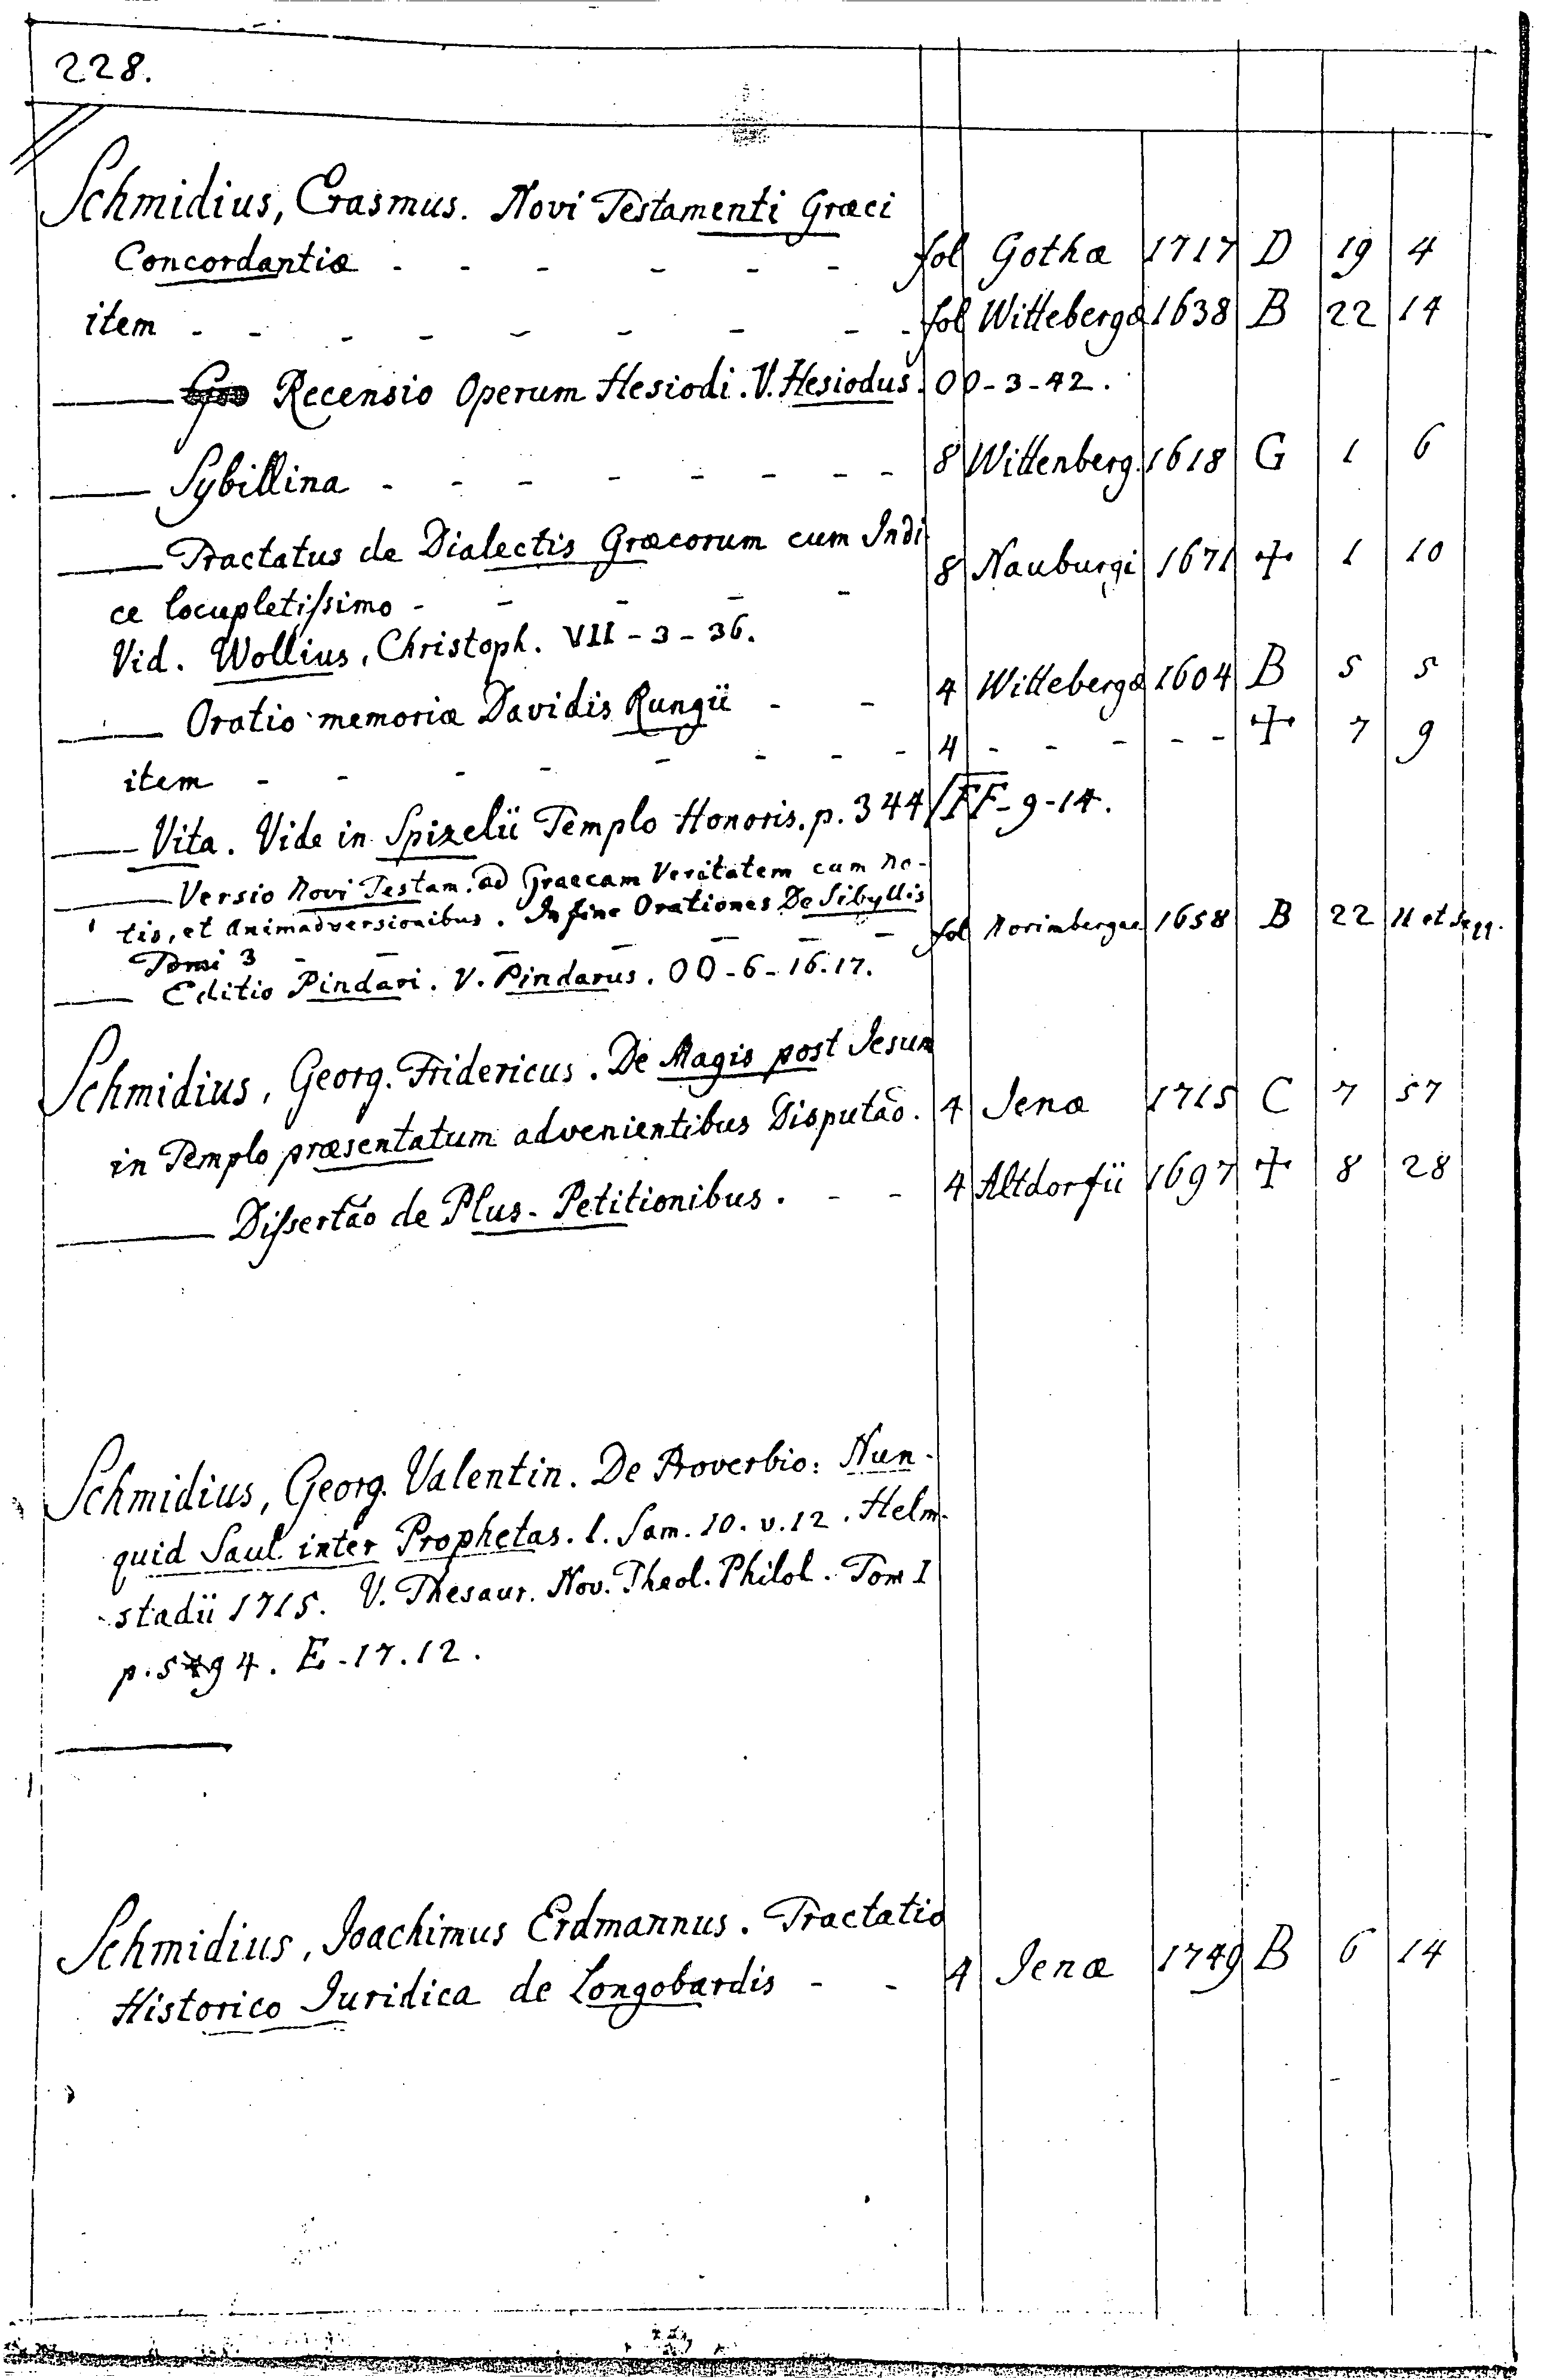 228.
Schmidius, Erasmus. Novi Testamenti Græci
Concordantiæ - - - - - - fol Gothæ 1717 D 19 4
item - - - - - - - - fol Wittebergæ 1638 B 22 14
—— Recensio Operum Hesiodi. V. Hesiodus. OO-3-42.
—— Sybillina - - - - - - - - 8 Wittenberg. 1618 G 1 6
—— Tractatus de Dialectis Græcorum cum Indi
ce locupletissimo - - - - 8 Nauburgi 1671 + 1 10
Vid. Wollius, Christoph. VII-3-36.
—— Oratio memoriæ Davidis Rungii - - 4 Wittebergæ 1604 B 5 5
item - - - - - - - 4 - - - - - + 7 9
—— Vita. Vide in Spizelii Templo Honoris. p. 344/FF-9-14.
—— Versio Novi Testam. ad Graecam Veritatem cum no-
tis, et Animadversionibus. In fine Orationes De Sibyllis
Tomi 3 - - - - - - fol Norimbergae 1658 B 22 11 et seqq.
—— Editio Pindari. V. Pindarus. OO-6-16.17.
Schmidius, Georg. Fridericus. De Magis post Jesum
in Templo præsentatum advenientibus Disputāo. 4 Jenæ 1715 C 7 57
—— Dissertāo de Plus-Petitionibus. - - 4 Altdorfii 1697 + 8 28
Schmidius, Georg. Valentin. De Proverbio: Nun-
quid Saul inter Prophetas. 1. Sam. 10. v. 12. Helm-
stadii 1715. V. Thesaur. Nov. Theol. Philol. Tom I
p. 594. E-17.12.
Schmidius, Joachimus Erdmannus. Tractatio
Historico Juridica de Longobardis - - 4 Jenæ 1749 B 6 14